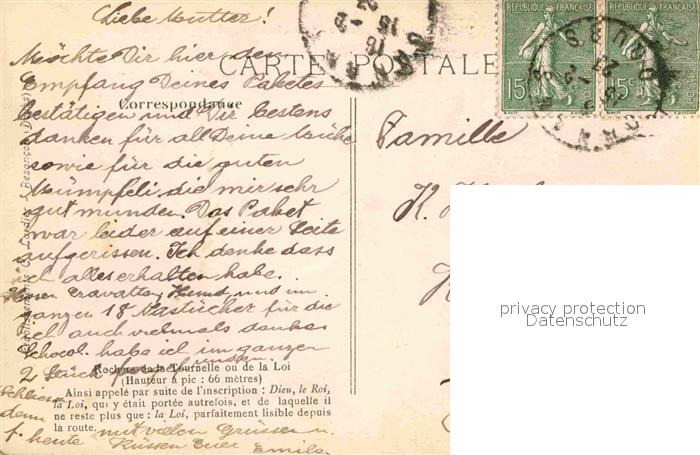 Liebe Mutter!
Möchte Dir hier den
Empfang Deines Paketes
bestätigen und Dir bestens
danken für all Deine Mühe
sowie für die guten
Mümpfeli die mir sehr
gut munden. Das Paket
war leider auf einer Seite
aufgerissen. Ich denke dass
ich alles erhalten habe.
Cravatte, Hemd und im
ganzen 18 für die
ich auch vielmals danke
Schocol. habe ich im ganzen
2 Stück
Schliesse
denn
f. heute mit vielen Grüssen u.
Küssen Euer Emile
CARTE POSTALE
Correspondance
RÉPUBLIQUE FRANÇAISE
15c
RÉPUBLIQUE FRANÇAISE
15c
Famille
H.
Rochers de la Tournelle ou de la Loi
(Hauteur à pic : 66 mètres)
Ainsi appelé par suite de l'inscription : Dieu, le Roi,
la Loi, qui y était portée autrefois, et de laquelle il
ne reste plus que : la Loi, parfaitement lisible depuis
la route.
Etablissements C. Lardier, Besançon (Doubs)
privacy protection
Datenschutz